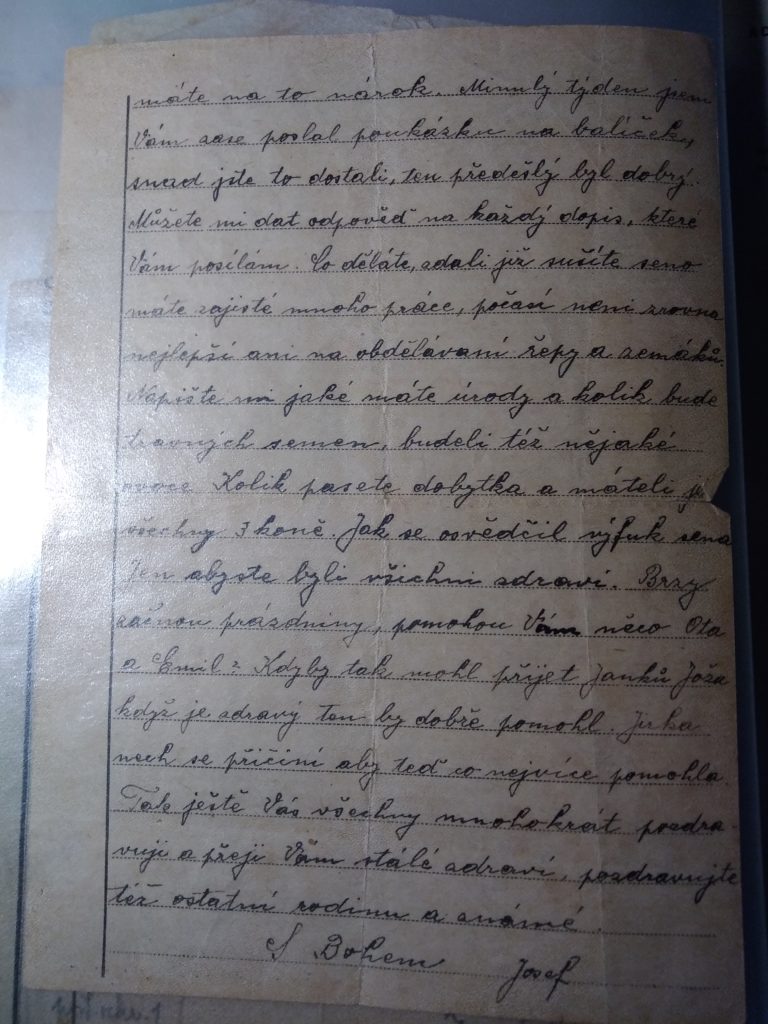 máte na to nárok. Minulý týden jsem
Vám zase poslal poukázku na balíček,
snad jste to dostali, ten předešlý byl dobrý.
Můžete mi dat odpověď na každý dopis, které
Vám posílám. Co děláte, zdali již sušíte seno
máte zajisté mnoho práce, počasí neni zrovna
nejlepší ani na obdělávaní řepy a zemáků.
Napište mi jaké máte úrody a kolik bude
travných semen, budeli též nějaké
ovoce Kolik pasete dobytka a máteli je
všechny 3 koně. Jak se osvědčil výfuk sena
Jen abyste byli všichni zdraví. Brzy
začnou prázdniny, pomohou Vám něco Ota
a Emil? Kdyby tak mohl přijet Janků Joža
když je zdravý ten by dobře pomohl. Jirka
nech se přičiní aby teď co nejvíce pomohla
Tak ještě Vás všechny mnohokrát pozdra-
vuji a přeji Vám stálé zdraví, pozdravujte
též ostatní rodinu a známé.
S Bohem Josef